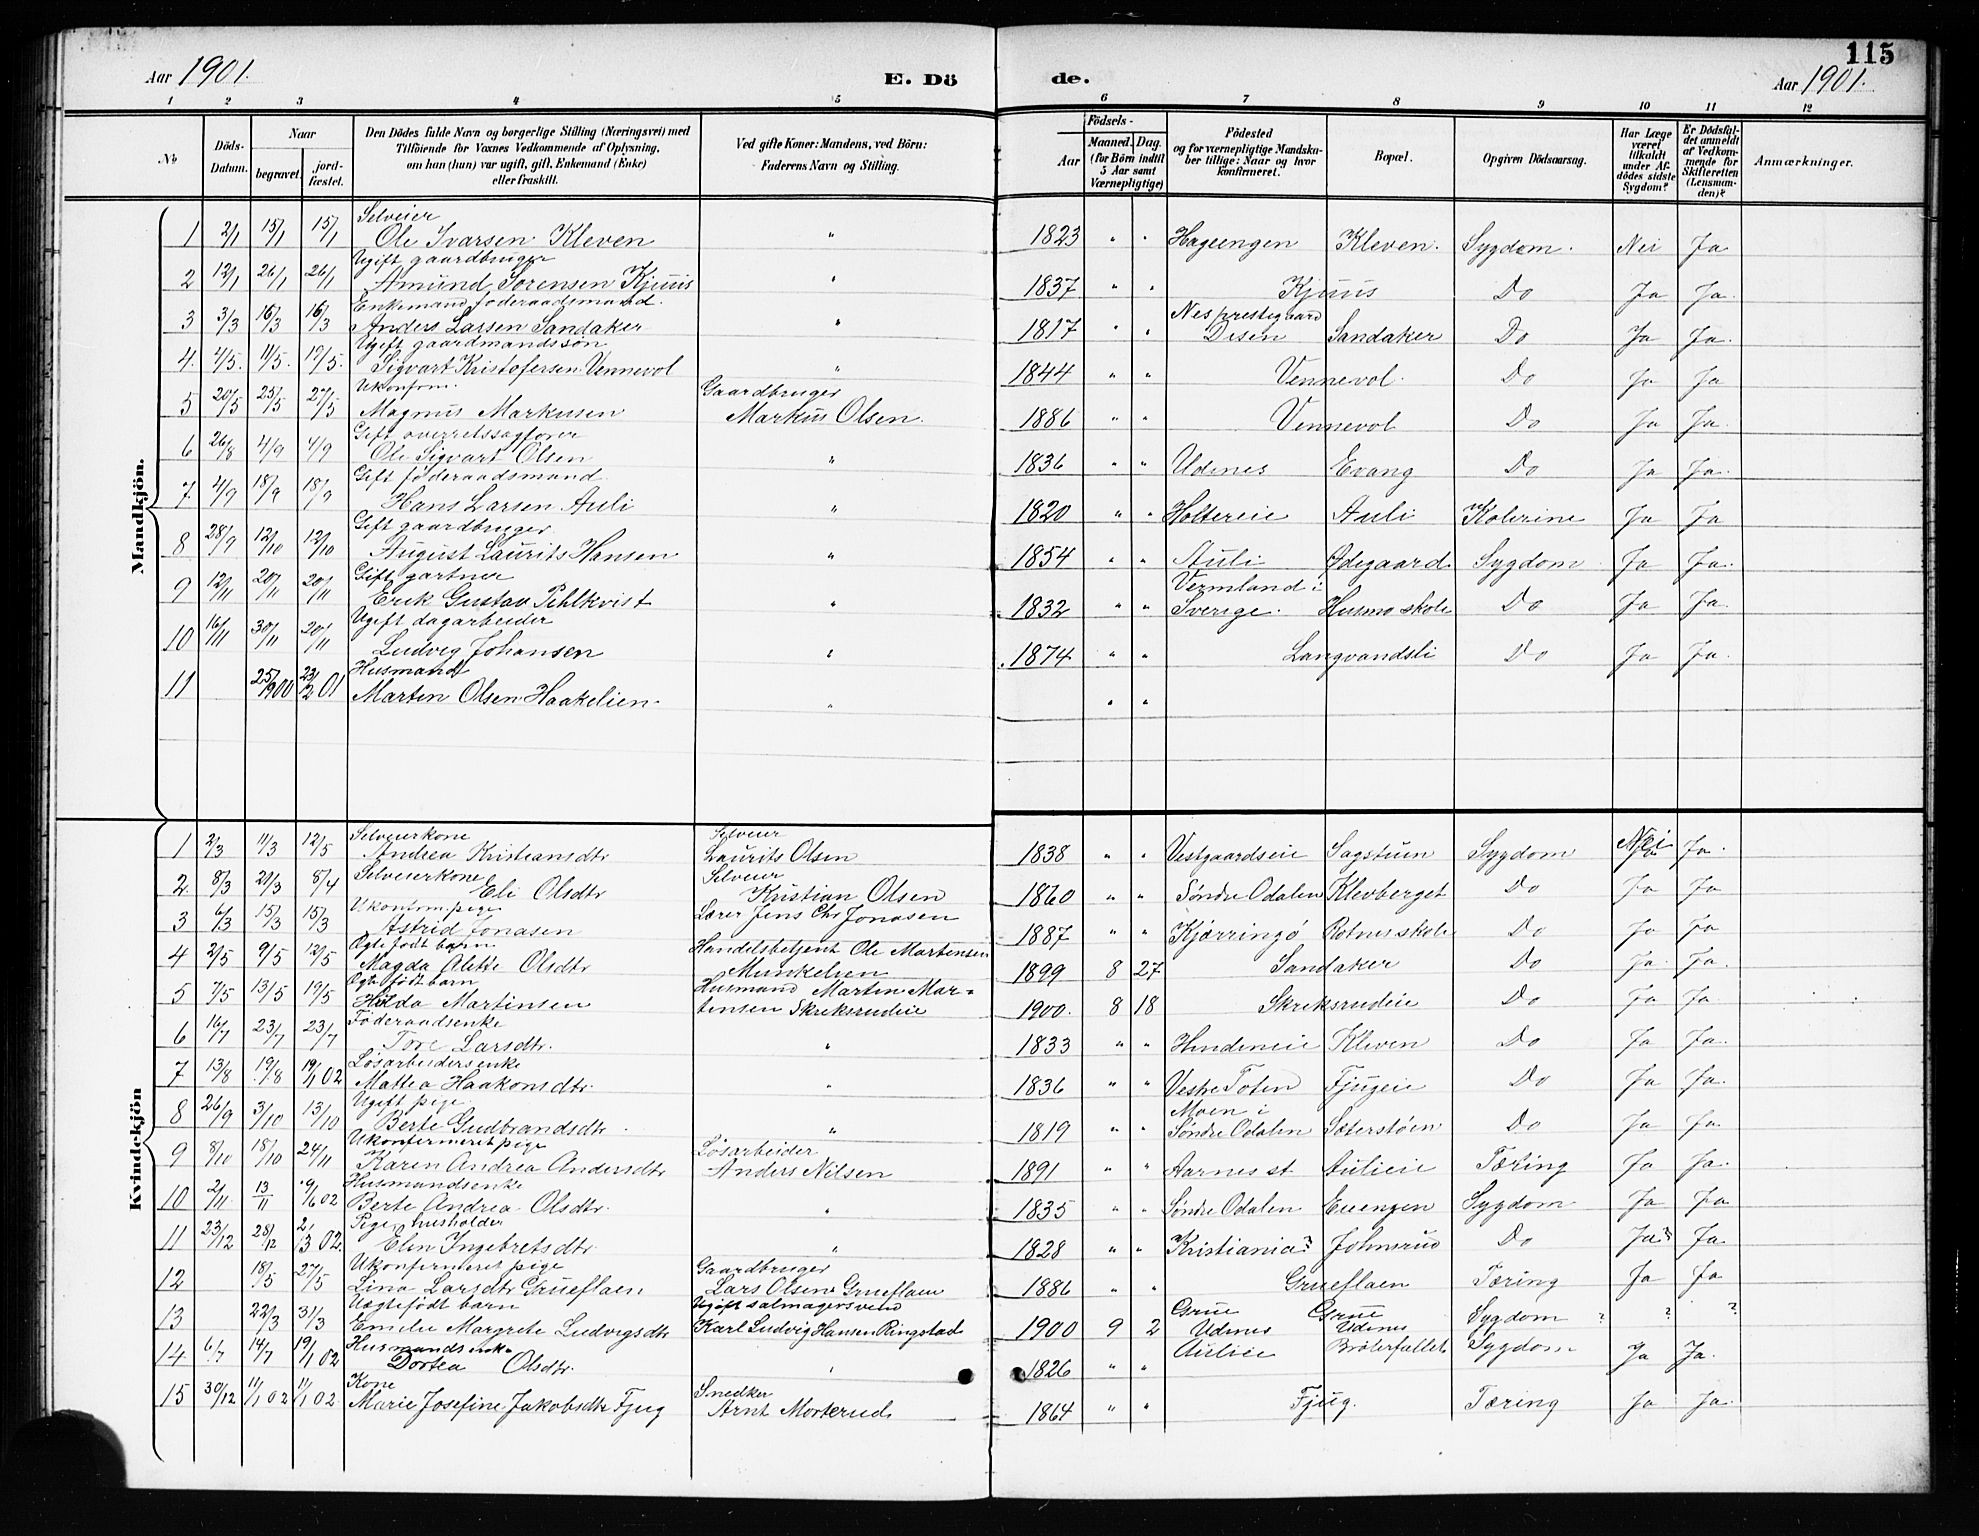 115
Aar 1901. E. Dö de. Aar 1901.
1 2 3 4 5 6 7 8 9 10 11 12
No Döds-Datum. Naar begravet. jord-fæstet. Den Dödes fulde Navn og borgerlige Stilling (Næringsvei) med Tilföiende for Voxnes Vedkommende af Oplysning, om han (hun) var ugift, gift, Enkemand (Enke) eller fraskilt. Ved gifte Koner: Mandens, ved Börn: Faderens Navn og Stilling. Födsels- Aar Maaned. Dag. (for Börn indtil 5 Aar samt Værnepligtige) Födested og for værnepligtige Mandskaber tillige: Naar og hvor konfirmeret. Bopæl. Opgiven Dödsaarsag. Har Læge været tilkaldt under Afdödes sidste Sygdom? Er Dödsfaldet anmeldt af Vedkommende for Skifteretten (Lensmanden)? Anmærkninger.
Mandkjön.
1 2/1 15/1 15/1 Selveier Ole Ivarsen Kleven " 1823 " " Hageengen Kleven. Sygdom. Nei Ja
2 12/1 26/1 26/1 Ugift gaardbruger Amund Sorensen Kjuus " 1837 " " Kjuus Do Ja Ja.
3 3/3 16/3 16/3 Enkemand föderaadsmand. Anders Larsen Sandaker " 1817 " " Nes prestegaard Disen Sandaker Do Ja Ja.
4. 4/5. 11/5. 19/5. Ugift gaardmandssön Sigvart Kristofersen Vennevol " 1844 " " Vennevol. Do Ja Ja
5 20/5 25/5 27/5 Ukonfrm. Magnus Markusen Gaardbruger Markus Olsen. 1886 " " Vennevol Do Ja Ja.
6 26/8 4/9 4/9 Gift overretssagfører Ole Sigvart Olsen " 1836 " " Udenes Evang Do Ja Ja.
7 4/9 18/9 18/9 Gift föderaadsmand Hans Larsen Auli " 1820 " " Holtereie Auli Kolerine Ja Ja
8 28/9 12/10 12/10 Gift gaardbruger August Laurits Hansen " 1854 " " Auli Ødegaard Sygdom Ja Ja.
9 12/11 20/11 20/11 Gift gartner Erik Gustav Pihlkvist " 1832 " " Vermland i Sverige. Husmo skole Do Ja Ja.
10 16/11 30/11 20/11 Ugift dagarbeider Ludvig Johansen " 1874 " " Langvandsli Do Ja Ja.
11 25/1900 23/12 01 Husmand Marten Olsen Haakelien. " " "
Kvindekjön
1 2/3 11/3 12/5 Selveierkone Andrea Kristiansdtr Selveier Laurits Olsen 1838 " " Vestgaardseie Sagstuen Sygdom Nei Ja.
2 8/3 21/3 8/4 Selveierkone Eli Olsdtr Selveier Kristian Olsen 1860 " " Søndre Odalen Klevberget Do Ja Ja
3 6/3 15/3 15/3 Ukonfrm. pige Astrid Jonasen Lærer Jens Chr Jonasen 1887 " " Kjærringö Rotnes skole Do Ja Ja
4 2/5 9/5 12/5 Ægtefödt barn Magda Alette Olsdtr Handelsbetjent Ole Martensen Munkelien 1899 8 27 Sandaker Do Ja Ja.
5 7/5 13/5 19/5 Ægtefödt barn Hilda Martinsen Husmand Marten Martensen Skreksrudeie 1900. 8 18 Skreksrudeie Do Ja Ja
6 16/7 23/7 23/7 Föderaadsenke Tore Larsdtr. " 1833 " " Hundeneie Kleven Do Ja Ja.
7 13/8 19/8 19/1 02 Løsarbeidersenke Mattea Haakonsdtr. " 1836 " " Vestre Toten Fjugeie Do Ja Ja
8 26/9 3/10 13/10 Ugift pige Berte Gudbrandsdtr " 1819 " " Moen i Søndre Odalen Sæterstøen Do Ja Ja.
9 8/10 18/10 24/11 Ukonfermeret pige Karen Andrea Andersdtr Løsarbeider Anders Nilsen 1891 " " Aarnes st Aulieie Tæring Ja Ja.
10 2/11 13/11 9/6 02 Husmandsenke Berte Andrea Olsdtr. " 1835 " " Søndre Odalen Euengen Sygdom Ja Ja
11 23/12 28/12 2/3 02. Pige, husholder Elen Ingebretsdtr " 1828 " " Kristiania? Johnsrud Do Ja? Ja.
12 18/5 27/5 Ukonfermeret pige Lina Larsdtr Grueflaen Gaardbruger Lars Olsen Grueflaen 1886 " " Grueflaen Tæring Ja Ja
13 22/3 31/3 Uægtefödt barn Emilie Margrete Ludvigsdtr Ugift salmagersvend Karl Ludvig Hansen Ringstad 1900 9 2 Grue Udenes Grue Udenes Sygdom ? ? ?
14 6/7 14/7 19/1 02 Husmandsenke Dortea Olsdtr. " 1826 " " Aulieie Bröterfallet Sygdom Ja Ja.
15 30/12 11/1 02 11/1 02 Kone Marie Josefine Jakobsdtr Fjug Snedker Arnt Morterud 1864 " " Fjug. Tæring Ja Ja.